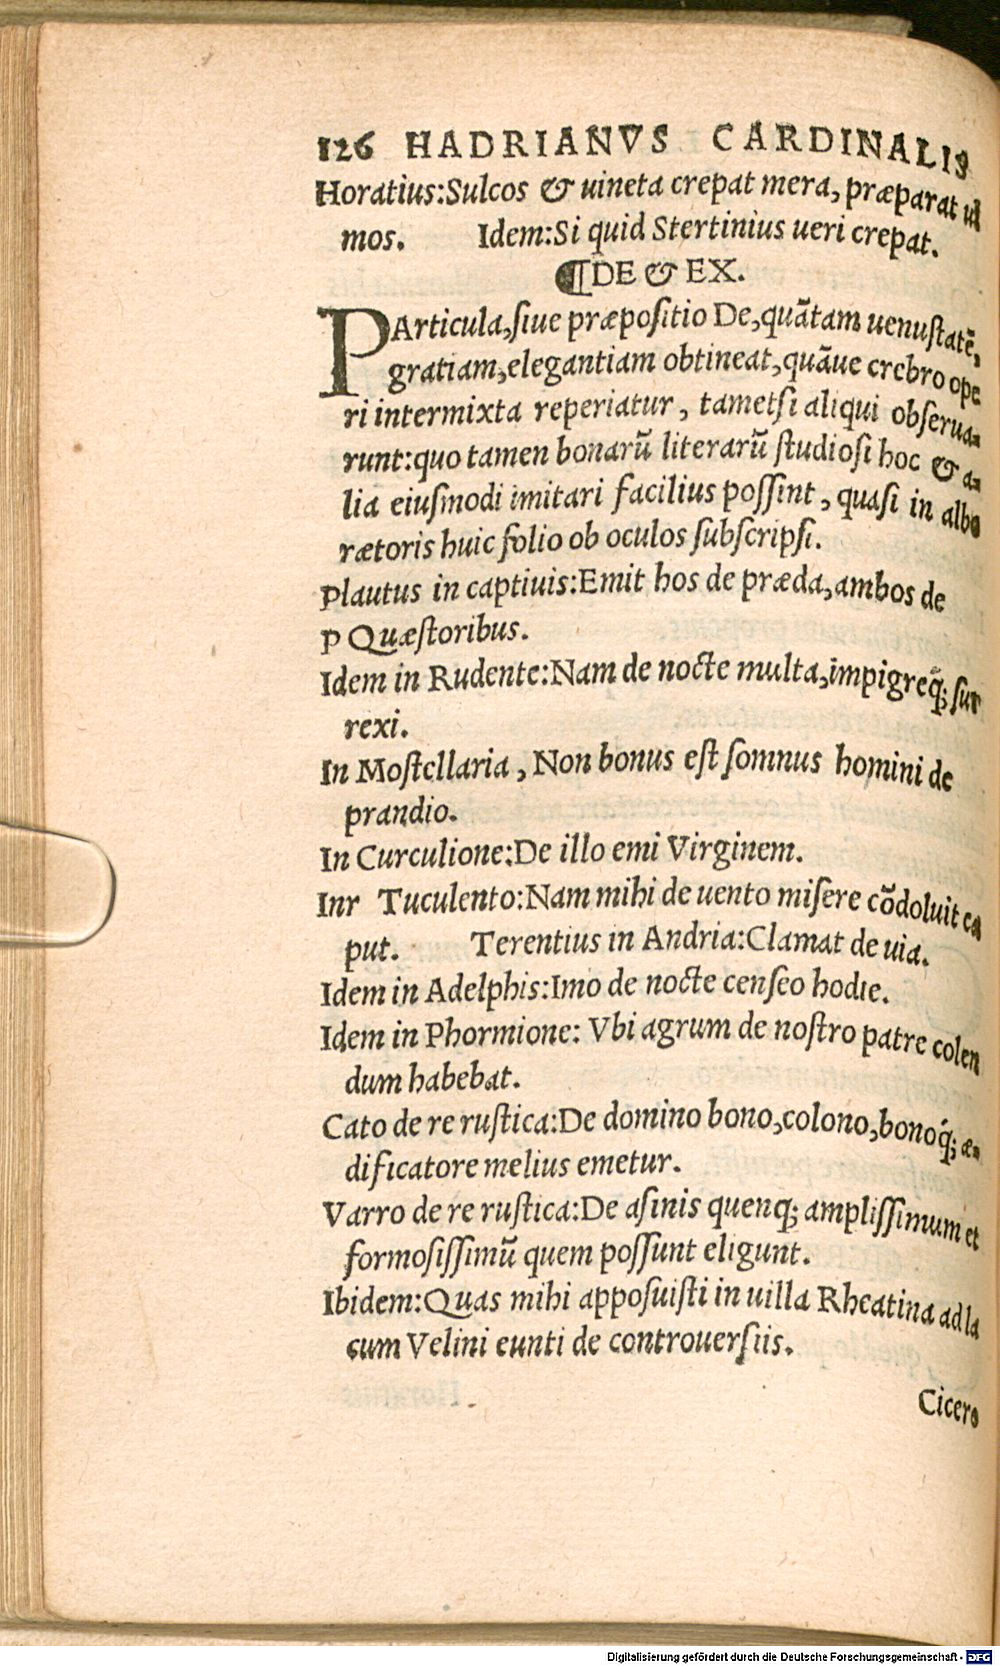 126 HADRIANVS CARDINALIS
Horatius:Sulcos & uineta crepat mera, præparat ul
mos. Idem:Si quid Stertinius ueri crepat.
¶DE & EX.
PArticula,ſiue præpoſitio De,quãtam uenuſtatẽ,
gratiam,elegantiam obtineat,quãue crebro ope
ri intermixta reperiatur, tametſi aliqui obſerua-
runt:quo tamen bonarũ literarũ ſtudioſi hoc & a-
lia eiuſmodi imitari facilius poſſint, quaſi in albo
rætoris huic folio ob oculos ſubſcripſi.
Plautus in captiuis:Emit hos de præda,ambos de
p Quæſtoribus.
Idem in Rudente:Nam de nocte multa,impigreq́; ſur
rexi.
In Moſtellaria, Non bonus eſt ſomnus homini de
prandio.
In Curculione:De illo emi Virginem.
Inr Tuculento:Nam mihi de uento miſere cõdoluit ca
put. Terentius in Andria:Clamat de uia.
Idem in Adelphis:Imo de nocte cenſeo hodie.
Idem in Phormione: Vbi agrum de noſtro patre colen
dum habebat.
Cato de re ruſtica:De domino bono,colono,bonoq́; æ-
dificatore melius emetur.
Varro de re ruſtica:De aſinis quenq; ampliſſimum et
formoſiſſimũ quem poſſunt eligunt.
Ibidem:Quas mihi appoſuiſti in uilla Rheatina ad la
cum Velini eunti de controuerſiis.
Cicero
Digitalisierung gefördert durch die Deutsche Forschungsgemeinschaft - DFG